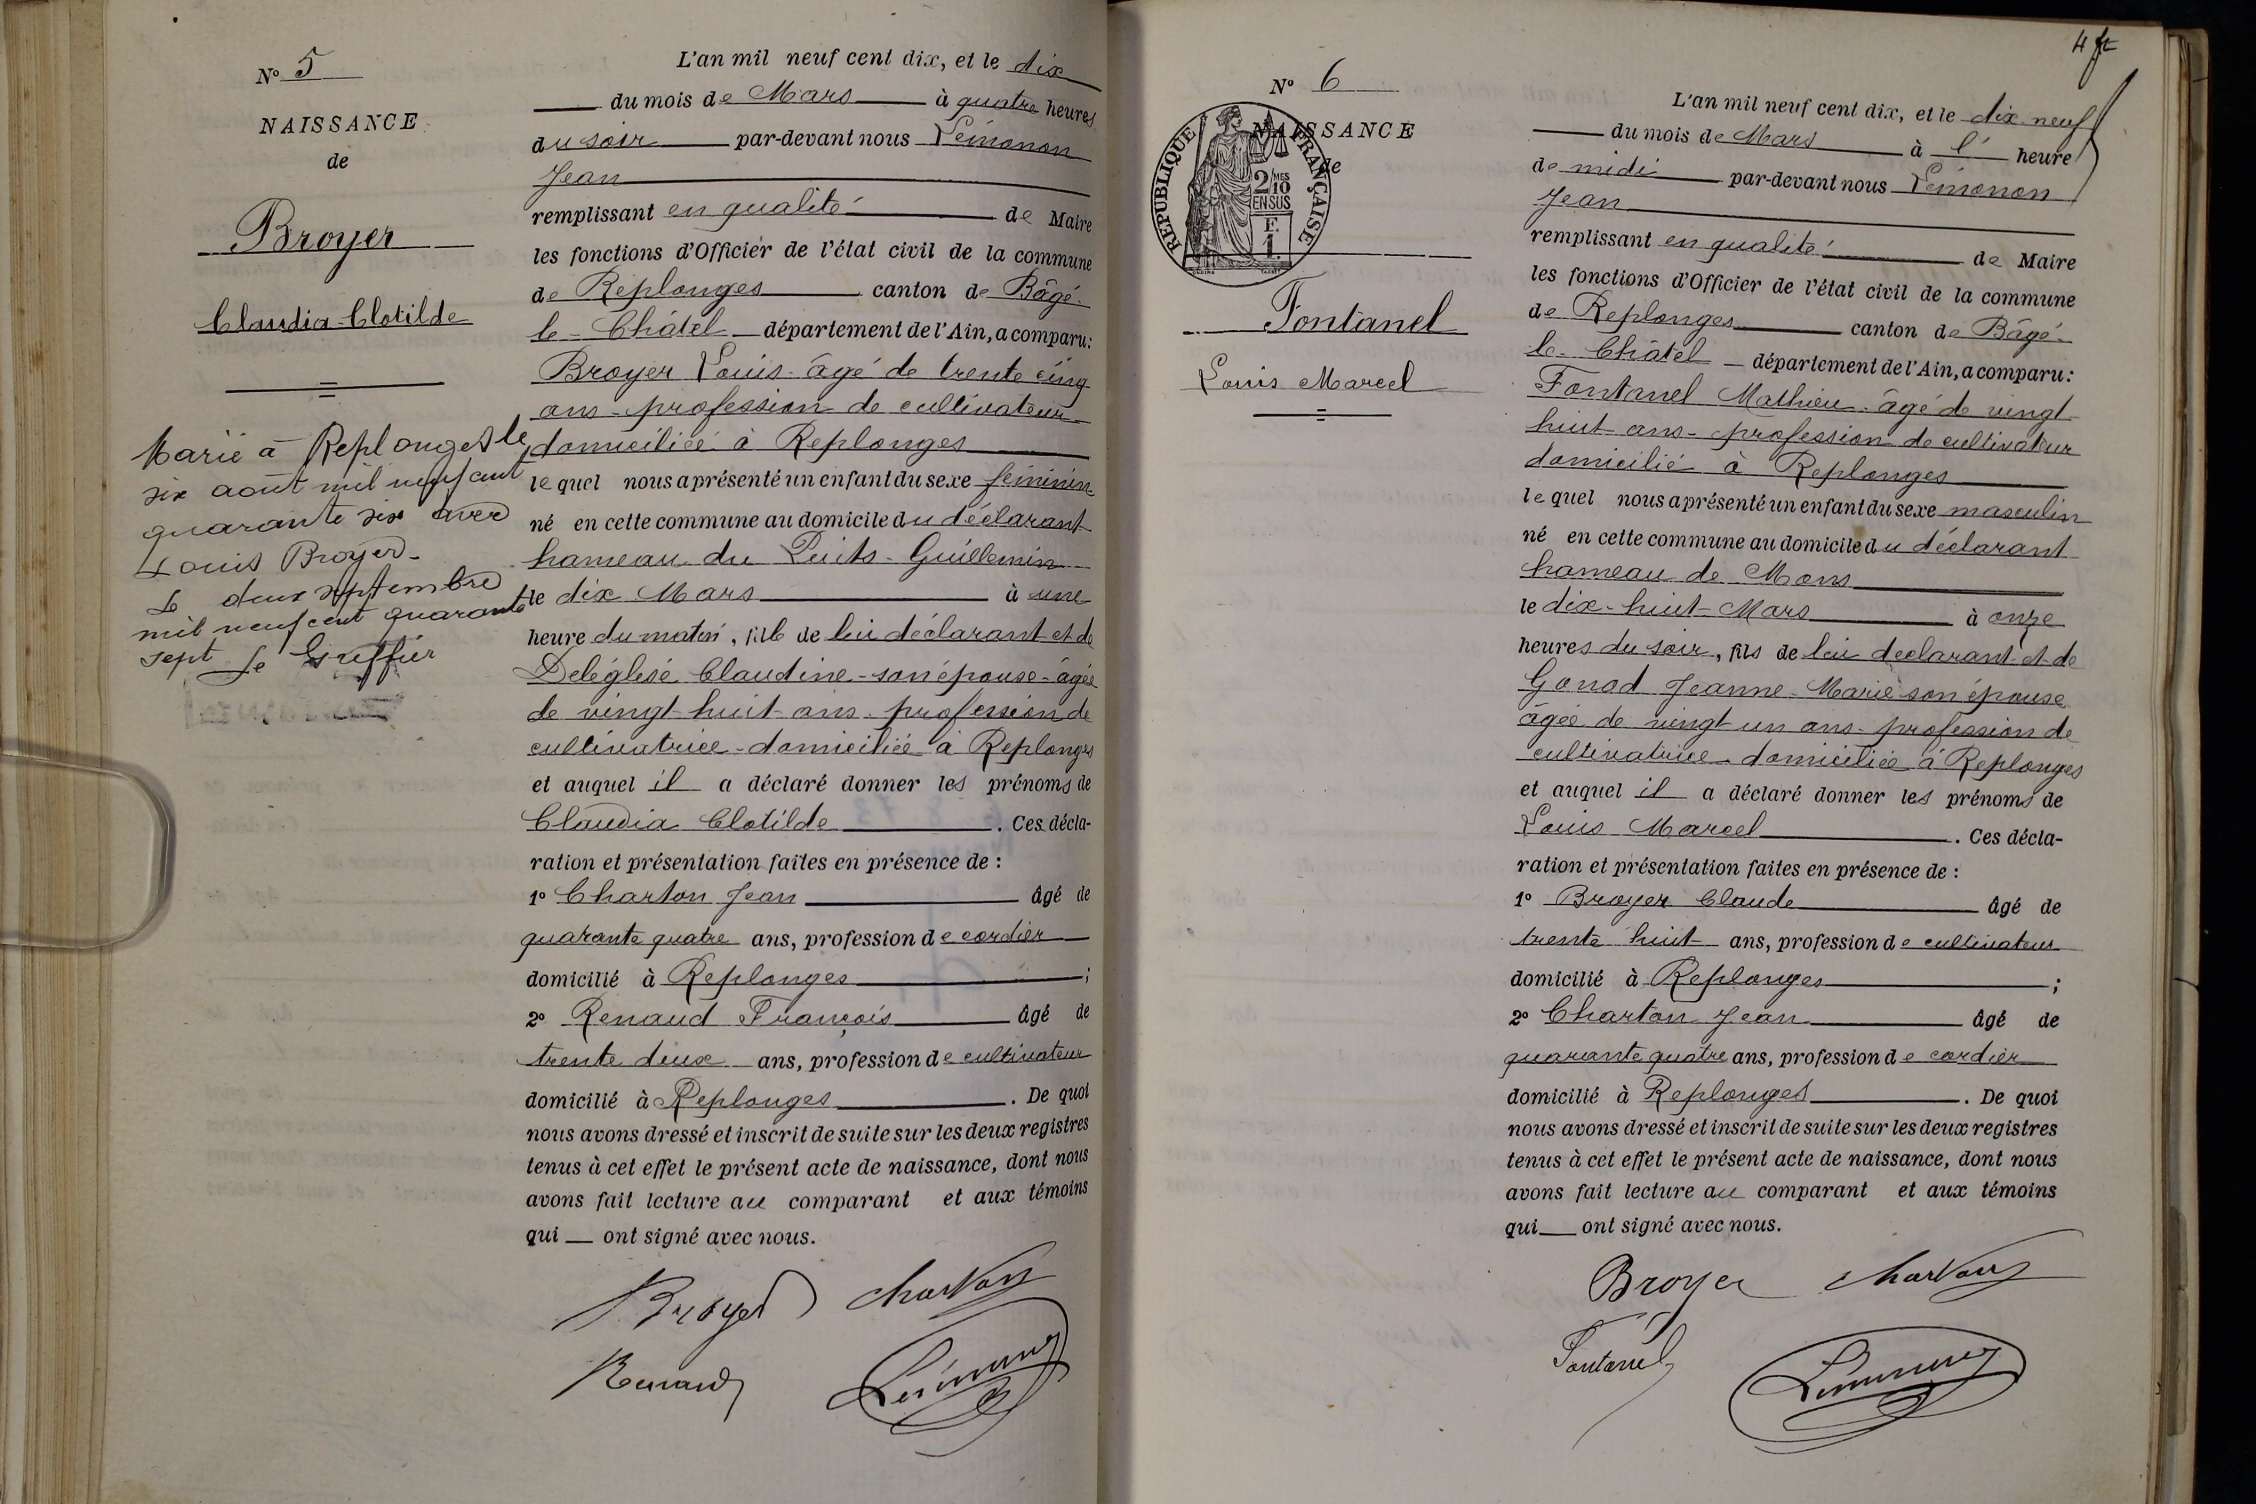 N° 5
NAISSANCE
de
Broyer
Claudia-Clotilde
Marié à Replonges le
six août mil neuf cent
quarante six avec
Louis Broyer.
Le deux septembre
mil neuf cent quarante
sept Le Greffier
L'an mil neuf cent dix, et le dix
du mois de Mars à quatre heures
du soir par-devant nous Lémonon
Jean
remplissant en qualité de Maire
les fonctions d'Officier de l'état civil de la commune
de Replonges canton de Bâgé-
le-Châtel département de l'Ain, a comparu:
Broyer Louis- âgé de trente cinq
ans- profession de cultivateur
domicilié à Replonges
lequel nous a présenté un enfant du sexe féminin
né en cette commune au domicile du déclarant
hameau du Puits-Guillemin
le dix Mars à une
heure du matin, fille de lui déclarant et de
Deléglise Claudine-son épouse-âgée
de vingt-huit-ans-profession de
cultivatrice-domiciliée à Replonges
et auquel il a déclaré donner les prénoms de
Claudia Clotilde. Ces décla-
ration et présentation faites en présence de :
1° Charton Jean âgé de
quarante quatre ans, profession de cordier
domicilié à Replonges ;
2° Renaud François âgé de
trente deux ans, profession de cultivateur
domicilié à Replonges. De quoi
nous avons dressé et inscrit de suite sur les deux registres
tenus à cet effet le présent acte de naissance, dont nous
avons fait lecture au comparant et aux témoins
qui ont signé avec nous.
Broyer Charton
Renaud Lémonon
4
N° 6
NAISSANCE
de
REPUBLIQUE FRANÇAISE
2/10 MES
EN SUS
F.
1.
Fontanel
Louis Marcel
L'an mil neuf cent dix, et le dix neuf
du mois de Mars à l' heure
de midi par-devant nous Lémonon
Jean
remplissant en qualité de Maire
les fonctions d'Officier de l'état civil de la commune
de Replonges canton de Bâgé-
le-Châtel département de l'Ain, a comparu:
Fontanel Mathieu-âgé de vingt
huit ans- profession de cultivateur
domicilié à Replonges
lequel nous a présenté un enfant du sexe masculin
né en cette commune au domicile du déclarant
hameau de Mons
le dix-huit-Mars à onze
heures du soir, fils de lui déclarant et de
Gonod Jeanne-Marie son épouse
âgée de vingt un ans- profession de
cultivatrice-domiciliée à Replonges
et auquel il a déclaré donner les prénoms de
Louis Marcel. Ces décla-
ration et présentation faites en présence de :
1° Broyer Claude âgé de
trente huit ans, profession de cultivateur
domicilié à Replonges ;
2° Charton Jean âgé de
quarante quatre ans, profession de cordier
domicilié à Replonges. De quoi
nous avons dressé et inscrit de suite sur les deux registres
tenus à cet effet le présent acte de naissance, dont nous
avons fait lecture au comparant et aux témoins
qui ont signé avec nous.
Broyer Charton
Fontanel Lémonon